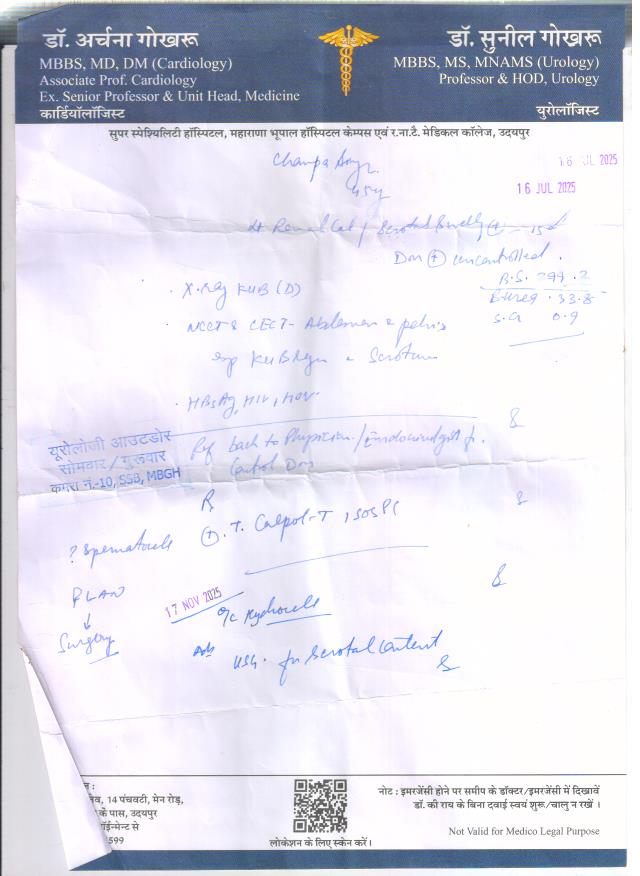 डॉ. अर्चना गोखरू
MBBS, MD, DM (Cardiology)
Associate Prof. Cardiology
Ex. Senior Professor & Unit Head, Medicine
कार्डियॉलॉजिस्ट
डॉ. सुनील गोखरू
MBBS, MS, MNAMS (Urology)
Professor & HOD, Urology
यूरोलॉजिस्ट
सुपर स्पेश्यिलिटी हॉस्पिटल, महाराणा भूपाल हॉस्पिटल केम्पस एवं र.ना.टै. मेडिकल कॉलेज, उदयपुर
Champa
16 JUL 2025
45y
16 JUL 2025
Lt Renal Cal / Scrotal Swelling ⊕ - 15d
Dm ⊕ uncontrolled.
B.S. 299.2
B.urea . 33.8
S.Cr 0.9
. X.ray KUB (D)
. NCCT & CECT - Abdomen & pelvis
KUB Region & Scrotum
. HBsAg, HIV, HCV
Ref back to Physician / Endocrinologist for
Control Dm
यूरोलोजी आउटडोर
सोमवार / गुरूवार
कमरा नं.-10, SSB, MBGH
R
⊕. T. Calpol-T, SOS
? Spermatocele
PLAN
↓
Surgery
17 NOV 2025
o/c Hydrocele
Adv
USG. for Scrotal Content
14 पंचवटी, मेन रोड़,
के पास, उदयपुर
से
599
लोकेशन के लिए स्केन करें।
नोट : इमरजेंसी होने पर समीप के डॉक्टर/इमरजेंसी में दिखावें
डॉ. की राय के बिना दवाई स्वयं शुरू/चालु न रखें ।
Not Valid for Medico Legal Purpose